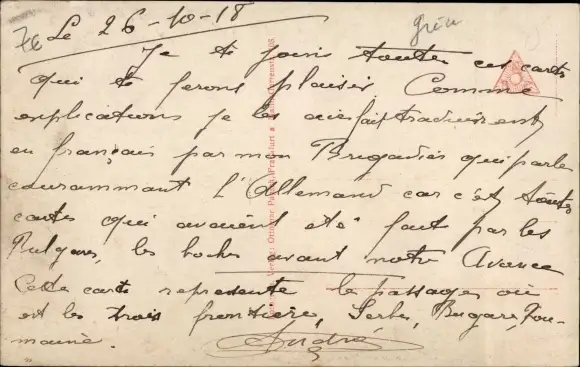 Le 26-10-18
Je te joins toutes ces carte
qui te ferons plaisir Comme
explications je les ai fait traduirent
en français par mon Brigadier qui parle
courammant l'Allemand car c'est toutes
cartes qui avaient été fait par les
Bulgares, les boches avant notre Avance
Cette carte represente le passages où
est les trois frontière, Serbe, Bugare, Rou-
maine.
André